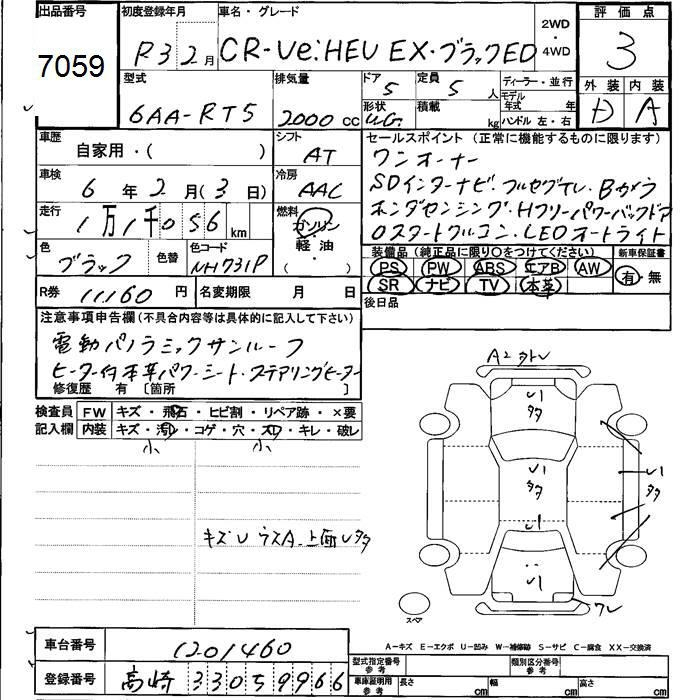 出品番号 初度登録年月 車名・グレード 2WD・4WD 評価点
7059 R3 2月 CR-Ve:HEV EX・ブラックED 3
型式 排気量 ドア 定員 ディーラー・並行 外装 内装
5 5人 モデル年式 年
6AA-RT5 2000cc 形状 積載 kg ハンドル 左・右 D A
車歴 シフト セールスポイント (正常に機能するものに限ります)
自家用・( ) AT ワンオーナー
車検 冷房 SDインターナビ・フルセグTV・Bカメラ
6年2月(3日) AAC ホンダセンシング・Hフリーパワーバックドア
走行 燃料
1万1千056km ガソリン・軽油・( ) LEDオートライト
色 色替 色コード 装備品 (純正品に限り○をつけてください) 新車保証書
ブラック NH731P PS PW ABS エアB AW 有・無
SR ナビ TV 本革
R券 11160円 名変期限 月 日 後日品
注意事項申告欄(不具合内容等は具体的に記入して下さい)
電動パノラミックサンルーフ
ヒーター付本革パワーシート・ステアリングヒーター
修復歴 有 〔箇所 〕
検査員 FW キズ・飛石・ヒビ割・リペア跡・×要
記入欄 内装 キズ・汚れ・コゲ・穴・スレ・キレ・破レ
小 小
A2
キズU ウスA 上面Uタタ
スペア
A-キズ E-エクボ U-凹み W-補修跡 S-サビ C-腐食 XX-交換済
車台番号 1201460
型式指定番号 参考 類別区分番号 参考
登録番号 高崎 330 59966
車庫証明用 参考 長さ cm 幅 cm 高さ cm